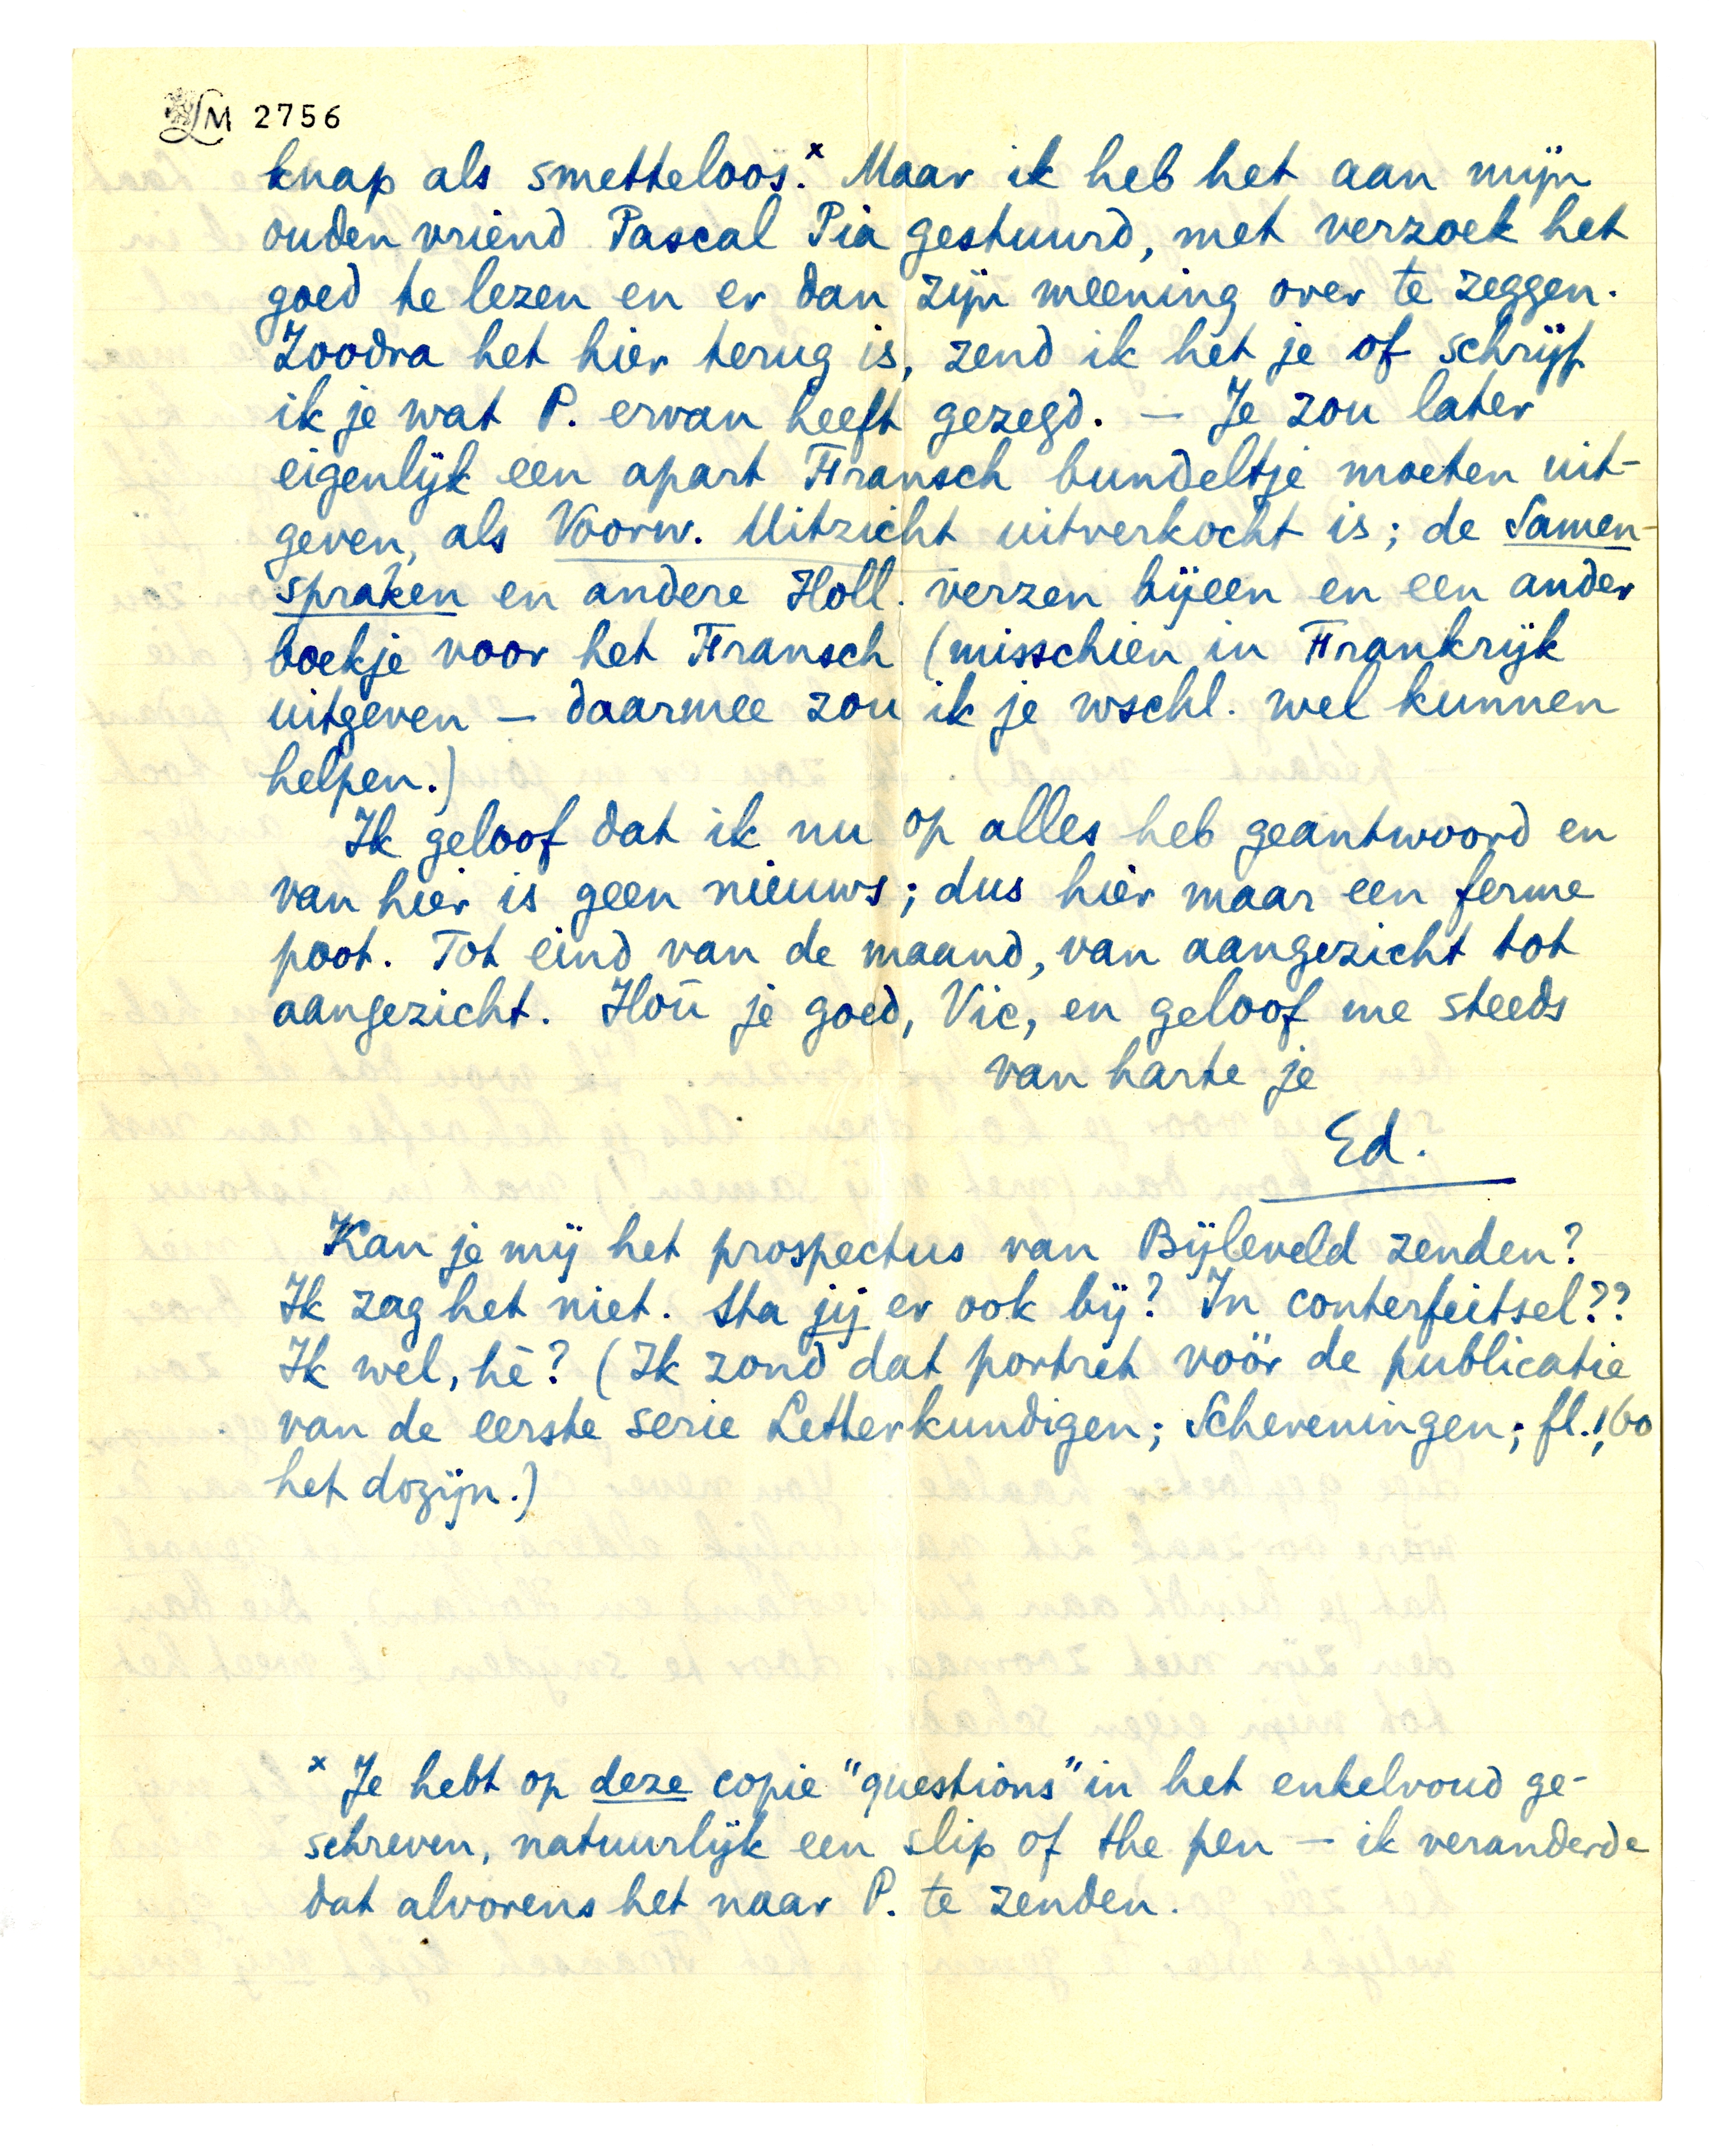 LM 2756
knap als smetteloos.x Maar ik heb het aan mijn
ouden vriend Pascal Pia gestuurd, met verzoek het
goed te lezen en er dan zijn meening over te zeggen.
Zoodra het hier terug is, zend ik het je of schrijf
ik je wat P. ervan heeft gezegd. — Je zou later
eigenlijk een apart Fransch bundeltje moeten uit-
geven, als Voorw. Uitzicht uitverkocht is; de Samen-
spraken en andere Holl. verzen bijeen en een ander
boekje voor het Fransch (misschien in Frankrijk
uitgeven — daarmee zou ik je wschl. wel kunnen
helpen.)
Ik geloof dat ik nu op alles heb geantwoord en
van hier is geen nieuws; dus hier maar een ferme
poot. Tot eind van de maand, van aangezicht tot
aangezicht. Hou je goed, Vic, en geloof me steeds
van harte je
Ed.
Kan je mij het prospectus van Bijleveld zenden?
Ik zag het niet. Sta jij er ook bij? In conterfeitsel??
Ik wel, hè? (Ik zond dat portret vóór de publicatie
van de eerste serie Letterkundigen; Scheveningen; fl. 1,60
het dozijn.)
x Je hebt op deze copie "questions" in het enkelvoud ge-
schreven, natuurlijk een slip of the pen — ik veranderde
dat alvorens het naar P. te zenden.